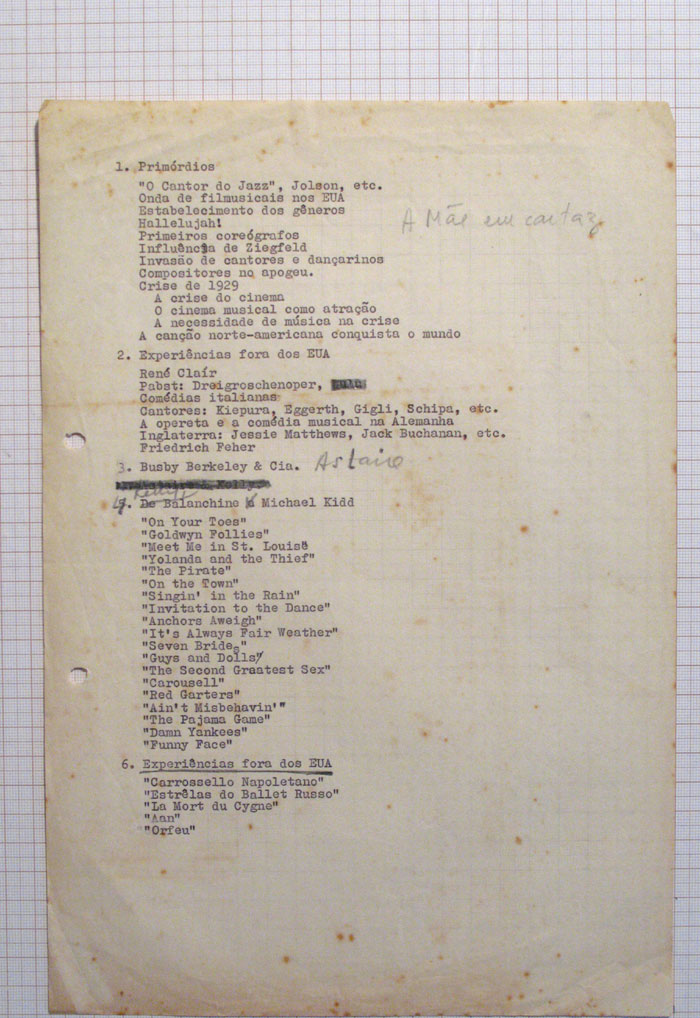 1. Primórdios
"O Cantor do Jazz", Jolson, etc.
Onda de filmusicais nos EUA
Estabelecimento dos gêneros
Hallelujah!
A Mãe em cartaz
Primeiros coreógrafos
Influência de Ziegfeld
Invasão de cantores e dançarinos
Compositores no apogeu.
Crise de 1929
A crise do cinema
O cinema musical como atração
A necessidade de música na crise
A canção norte-americana conquista o mundo
2. Experiências fora dos EUA
René Claír
Pabst: Dreigroschenoper,
Comédias italianas
Cantores: Kiepura, Eggerth, Gigli, Schipa, etc.
A opereta e a comédia musical na Alemanha
Inglaterra: Jessie Matthews, Jack Buchanan, etc.
Friedrich Feher
3. Busby Berkeley & Cia. Astaire
Kelly
4. De Balanchine a Michael Kidd
"On Your Toes"
"Goldwyn Follies"
"Meet Me in St. Louis"
"Yolanda and the Thief"
"The Pirate"
"On the Town"
"Singin' in the Rain"
"Invitation to the Dance"
"Anchors Aweigh"
"It's Always Fair Weather"
"Seven Brides"
"Guys and Dolls"
"The Second Graatest Sex"
"Carousell"
"Red Garters"
"Ain't Misbehavin'"
"The Pajama Game"
"Damn Yankees"
"Funny Face"
6. Experiências fora dos EUA
"Carrossello Napoletano"
"Estrêlas do Ballet Russo"
"La Mort du Cygne"
"Aan"
"Orfeu"